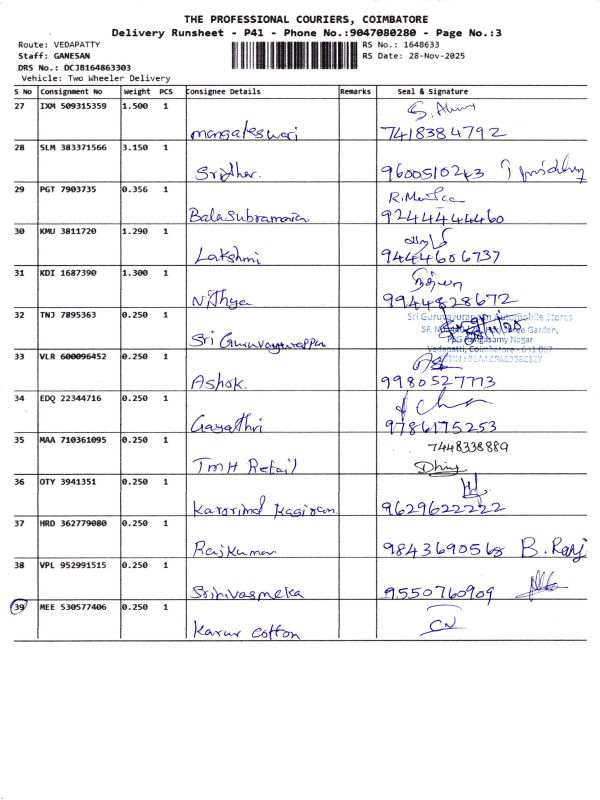 THE PROFESSIONAL COURIERS, COIMBATORE
Delivery Runsheet - P41 - Phone No.:9047080280 - Page No.:3
Route: VEDAPATTY RS No.: 1648633
Staff: GANESAN RS Date: 28-Nov-2025
DRS No.: DCJB164863303
Vehicle: Two Wheeler Delivery
S No Consignment No Weight PCS Consignee Details Remarks Seal & Signature
27 IXM 509315359 1.500 1
mangaleswari 7418384792
28 SLM 383371566 3.150 1
Sridhar. 9600510243
29 PGT 7903735 0.356 1
Balasubramania 9244444460
30 KMU 3811720 1.290 1
Lakshmi 9444606737
31 KDI 1687390 1.300 1 நித்யா
Nithya 9944828672
32 TNJ 7895363 0.250 1 Sri Guruvayurappan Automobile Stores
Sri Guruvayurappan
33 VLR 600096452 0.250 1 Vedapatti, Coimbatore - 641 007
Ashok. 9980527773
34 EDQ 22344716 0.250 1
Gayathri 9786175253
35 MAA 710361095 0.250 1 7448338889
TMH Retail Dhiy
36 OTY 3941351 0.250 1
9629622222
37 HRD 362779080 0.250 1
Rajkumar 9843690568 B. Raj
38 VPL 952991515 0.250 1
Srinivasmeka 9550760909
39 MEE 530577406 0.250 1
Karur cotton CN